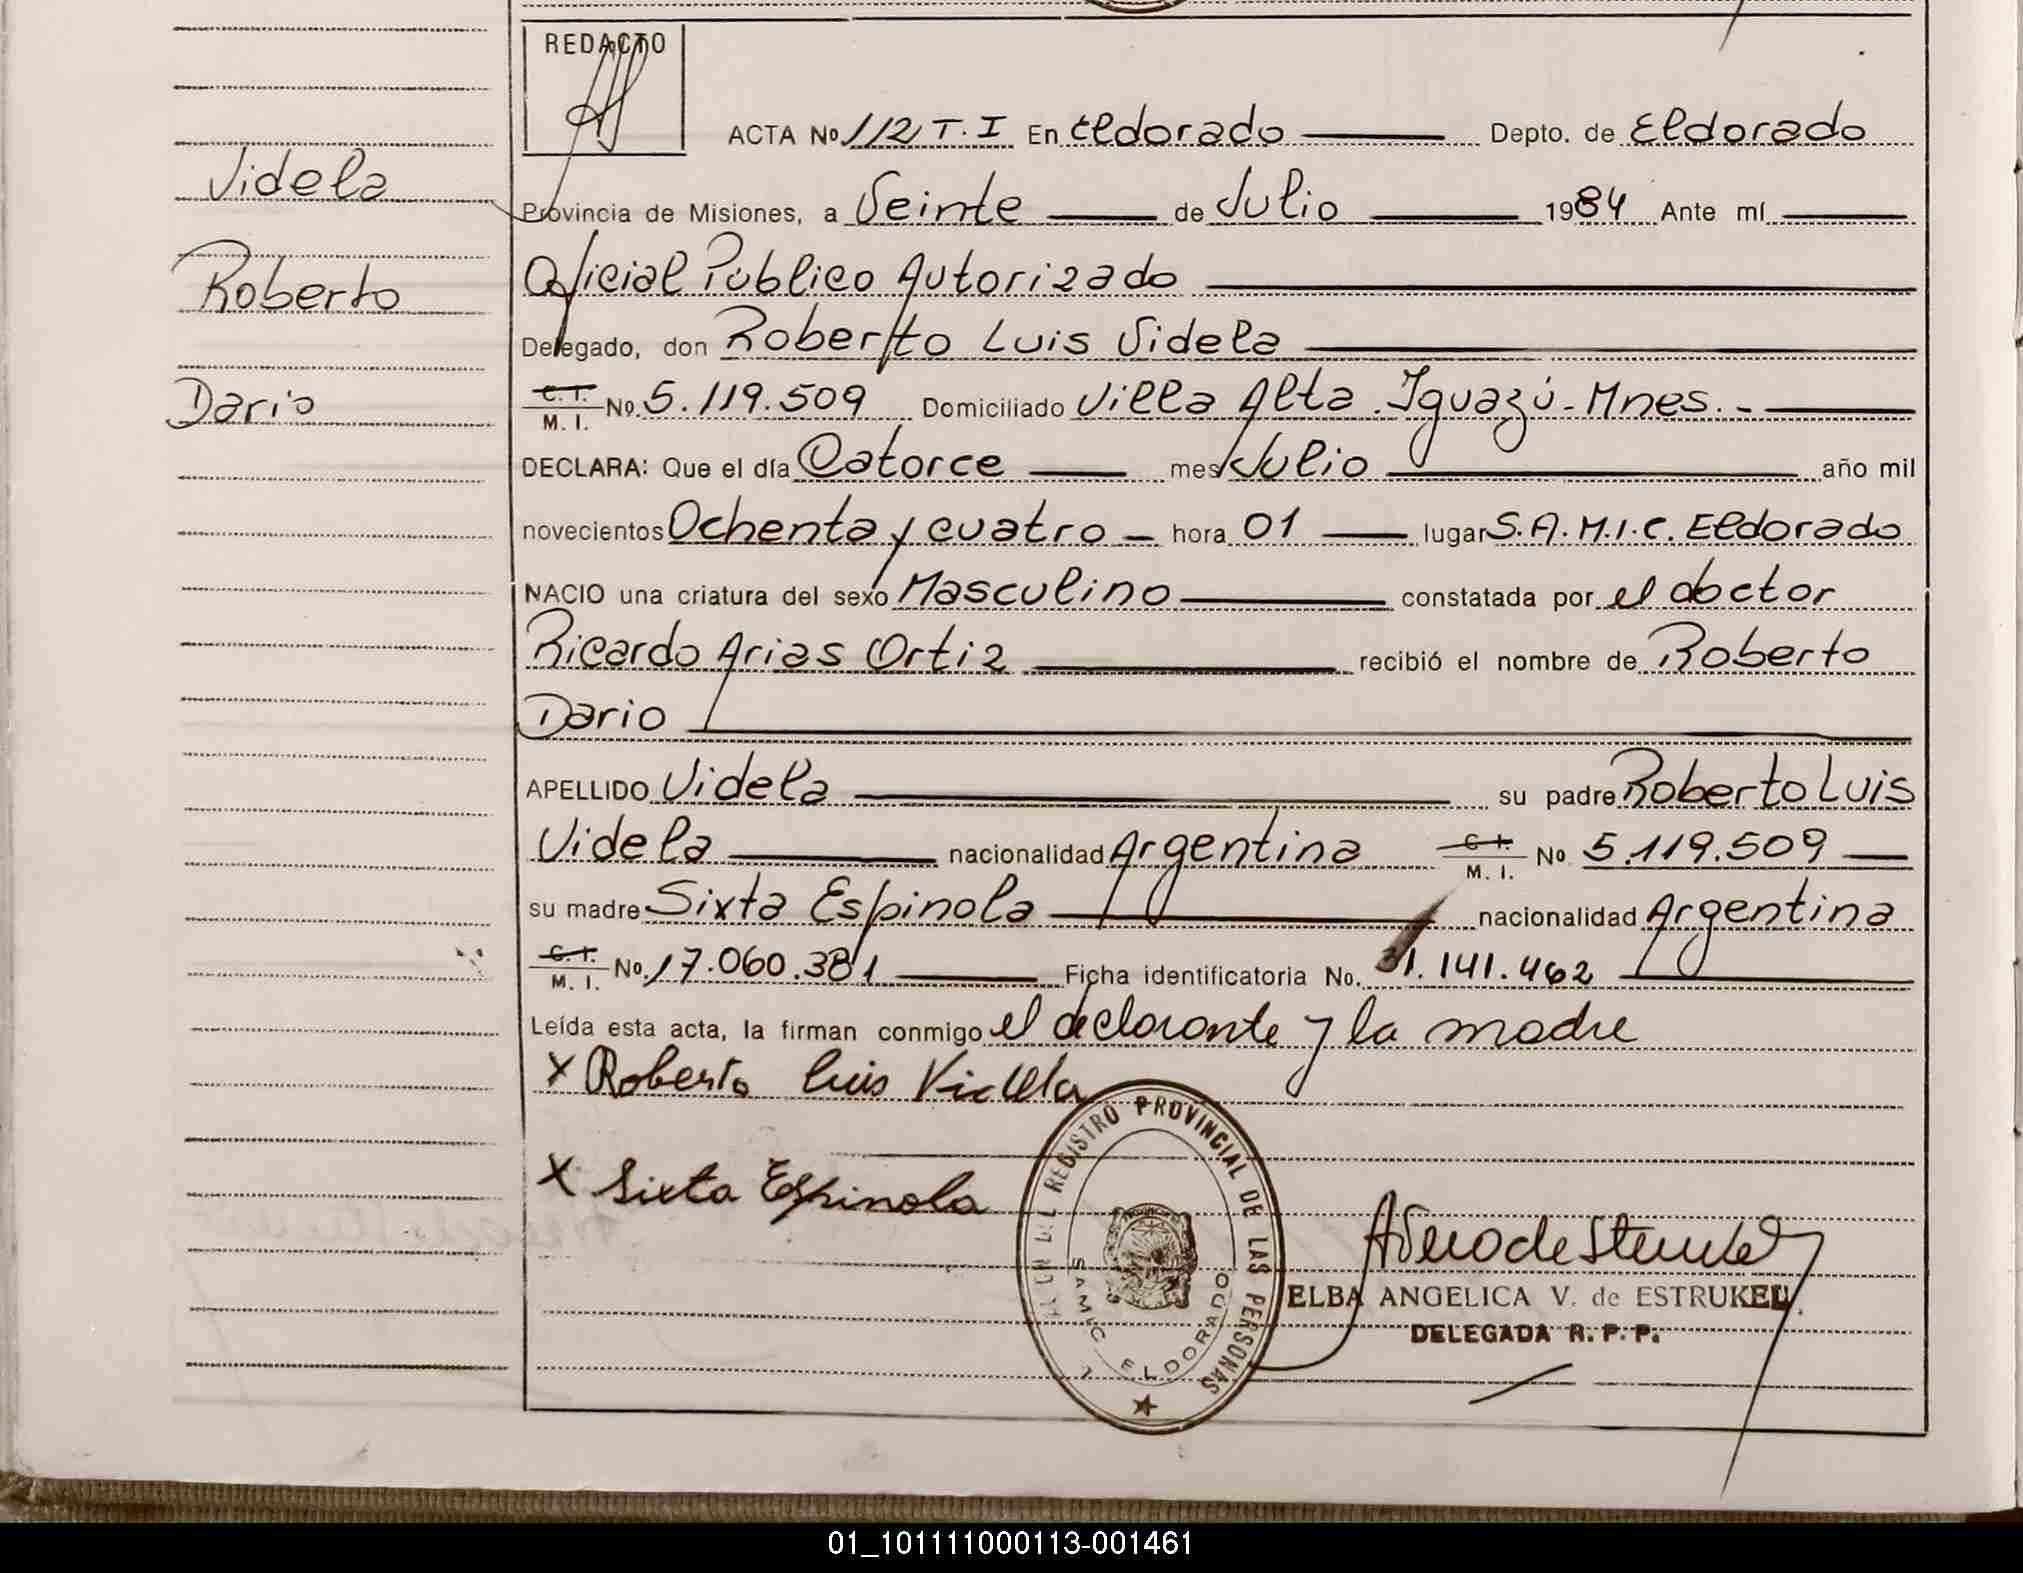 REDACTO
ACTA No 112 T. I En Eldorado Depto. de Eldorado
Videla
Provincia de Misiones, a Veinte de Julio 1984 Ante mí
Roberto
Oficial Público Autorizado
Delegado, don Roberto Luis Videla
Dario
C. I. M. I. No. 5.119.509 Domiciliado Villa Alta. Iguazú - Mnes. -
DECLARA: Que el día Catorce mes Julio año mil
novecientos Ochenta y cuatro - hora 01 lugar S.A.M.I.C. Eldorado
NACIO una criatura del sexo Masculino constatada por el doctor
Ricardo Arias Ortiz recibió el nombre de Roberto
Dario
APELLIDO Videla su padre Roberto Luis
Videla nacionalidad Argentina C. I. M. I. No 5.119.509
su madre Sixta Espinola nacionalidad Argentina
C. I. M. I. No. 17.060.381 Ficha identificatoria No. 31.141.462
Leída esta acta, la firman conmigo el declarante y la madre
X Roberto Luis Videla
X Sixta Espinola
REGISTRO PROVINCIAL DE LAS PERSONAS
SAMIC ELDORADO
ELBA ANGELICA V. de ESTRUKEL
DELEGADA R. P. P.
01_101111000113-001461